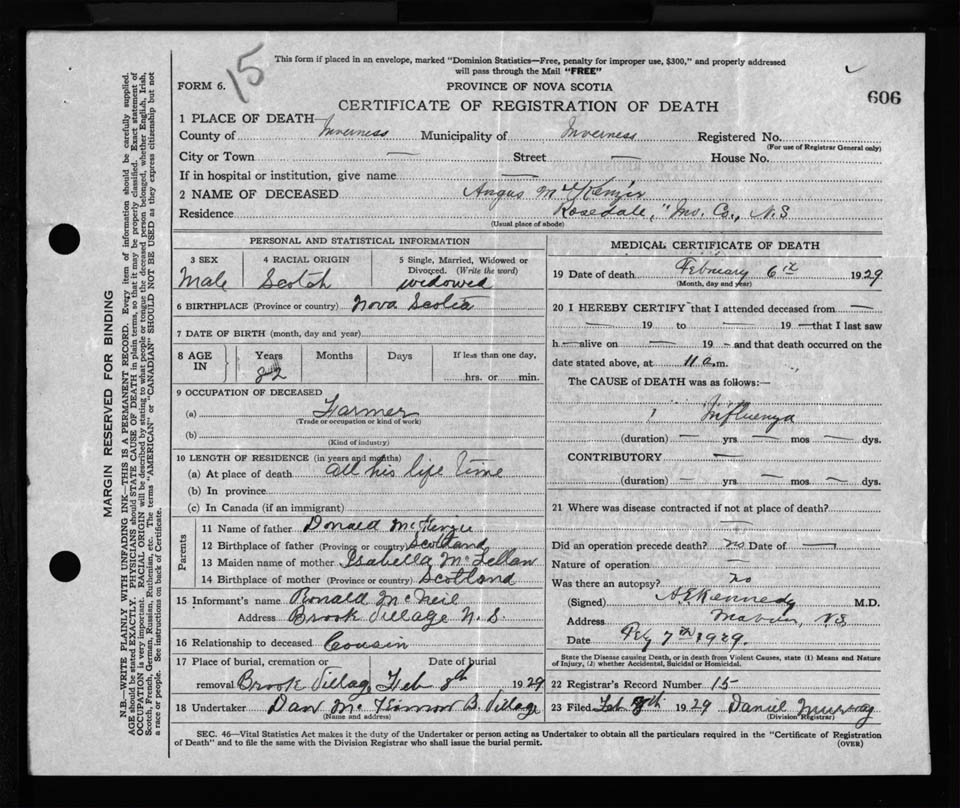 15
This form if placed in an envelope, marked "Dominion Statistics—Free, penalty for improper use, $300," and properly addressed
will pass through the Mail "FREE"
FORM 6.
PROVINCE OF NOVA SCOTIA
606
CERTIFICATE OF REGISTRATION OF DEATH
1 PLACE OF DEATH—
County of Inverness Municipality of Inverness Registered No.
(For use of Registrar General only)
City or Town — Street — House No.
If in hospital or institution, give name —
2 NAME OF DECEASED Angus McKenzie
Residence Rosedale, Inv. Co., N.S
(Usual place of abode)
PERSONAL AND STATISTICAL INFORMATION
3 SEX 4 RACIAL ORIGIN 5 Single, Married, Widowed or
Divorced. (Write the word)
Male Scotch widowed
6 BIRTHPLACE (Province or country) Nova Scotia
7 DATE OF BIRTH (month, day and year)
8 AGE IN Years Months Days If less than one day,
82 hrs. or min.
9 OCCUPATION OF DECEASED
(a) Farmer
(Trade or occupation or kind of work)
(b)
(Kind of industry)
10 LENGTH OF RESIDENCE (in years and months)
(a) At place of death all his life time
(b) In province
(c) In Canada (if an immigrant)
Parents
11 Name of father Donald McKenzie
12 Birthplace of father (Province or country) Scotland
13 Maiden name of mother Isabella McLellan
14 Birthplace of mother (Province or country) Scotland
15 Informant's name Ronald McNeil
Address Brook Village N.S.
16 Relationship to deceased Cousin
17 Place of burial, cremation or Date of burial
removal Brook Village Feb 8th 1929
18 Undertaker Dan Mc B. Village
(Name and address)
MEDICAL CERTIFICATE OF DEATH
19 Date of death February 6th 1929
(Month, day and year)
20 I HEREBY CERTIFY that I attended deceased from —
— 19 to — 19 — that I last saw
h — alive on — 19 — and that death occurred on the
date stated above, at 11 a.m.
The CAUSE of DEATH was as follows:—
1 Influenza
(duration) — yrs — mos — dys.
CONTRIBUTORY —
(duration) — yrs — mos — dys.
21 Where was disease contracted if not at place of death?
—
Did an operation precede death? no Date of —
Nature of operation —
Was there an autopsy? no
(Signed) A E Kennedy M.D.
Address Mabou, N.S.
Date Feb 7th 1929.
State the Disease causing Death, or in death from Violent Causes, state (1) Means and Nature
of Injury, (2) whether Accidental, Suicidal or Homicidal.
22 Registrar's Record Number 15
23 Filed Feb 8th 1929 Daniel Murray
(Division Registrar)
SEC. 46—Vital Statistics Act makes it the duty of the Undertaker or person acting as Undertaker to obtain all the particulars required in the "Certificate of Registration
of Death" and to file the same with the Division Registrar who shall issue the burial permit.
(OVER)
MARGIN RESERVED FOR BINDING
N.B.—WRITE PLAINLY WITH UNFADING INK—THIS IS A PERMANENT RECORD. Every item of information should be carefully supplied.
AGE should be stated EXACTLY. PHYSICIANS should STATE CAUSE OF DEATH in plain terms, so that it may be properly classified. Exact statement of
OCCUPATION is very important. RACIAL ORIGIN will be described by stating to what people or tongue the deceased person belonged, whether English, Irish,
Scotch, French, German, Russian, Ruthenian, etc. The terms "AMERICAN" or "CANADIAN" SHOULD NOT BE USED as they express citizenship but not
a race or people. See instructions on back of Certificate.